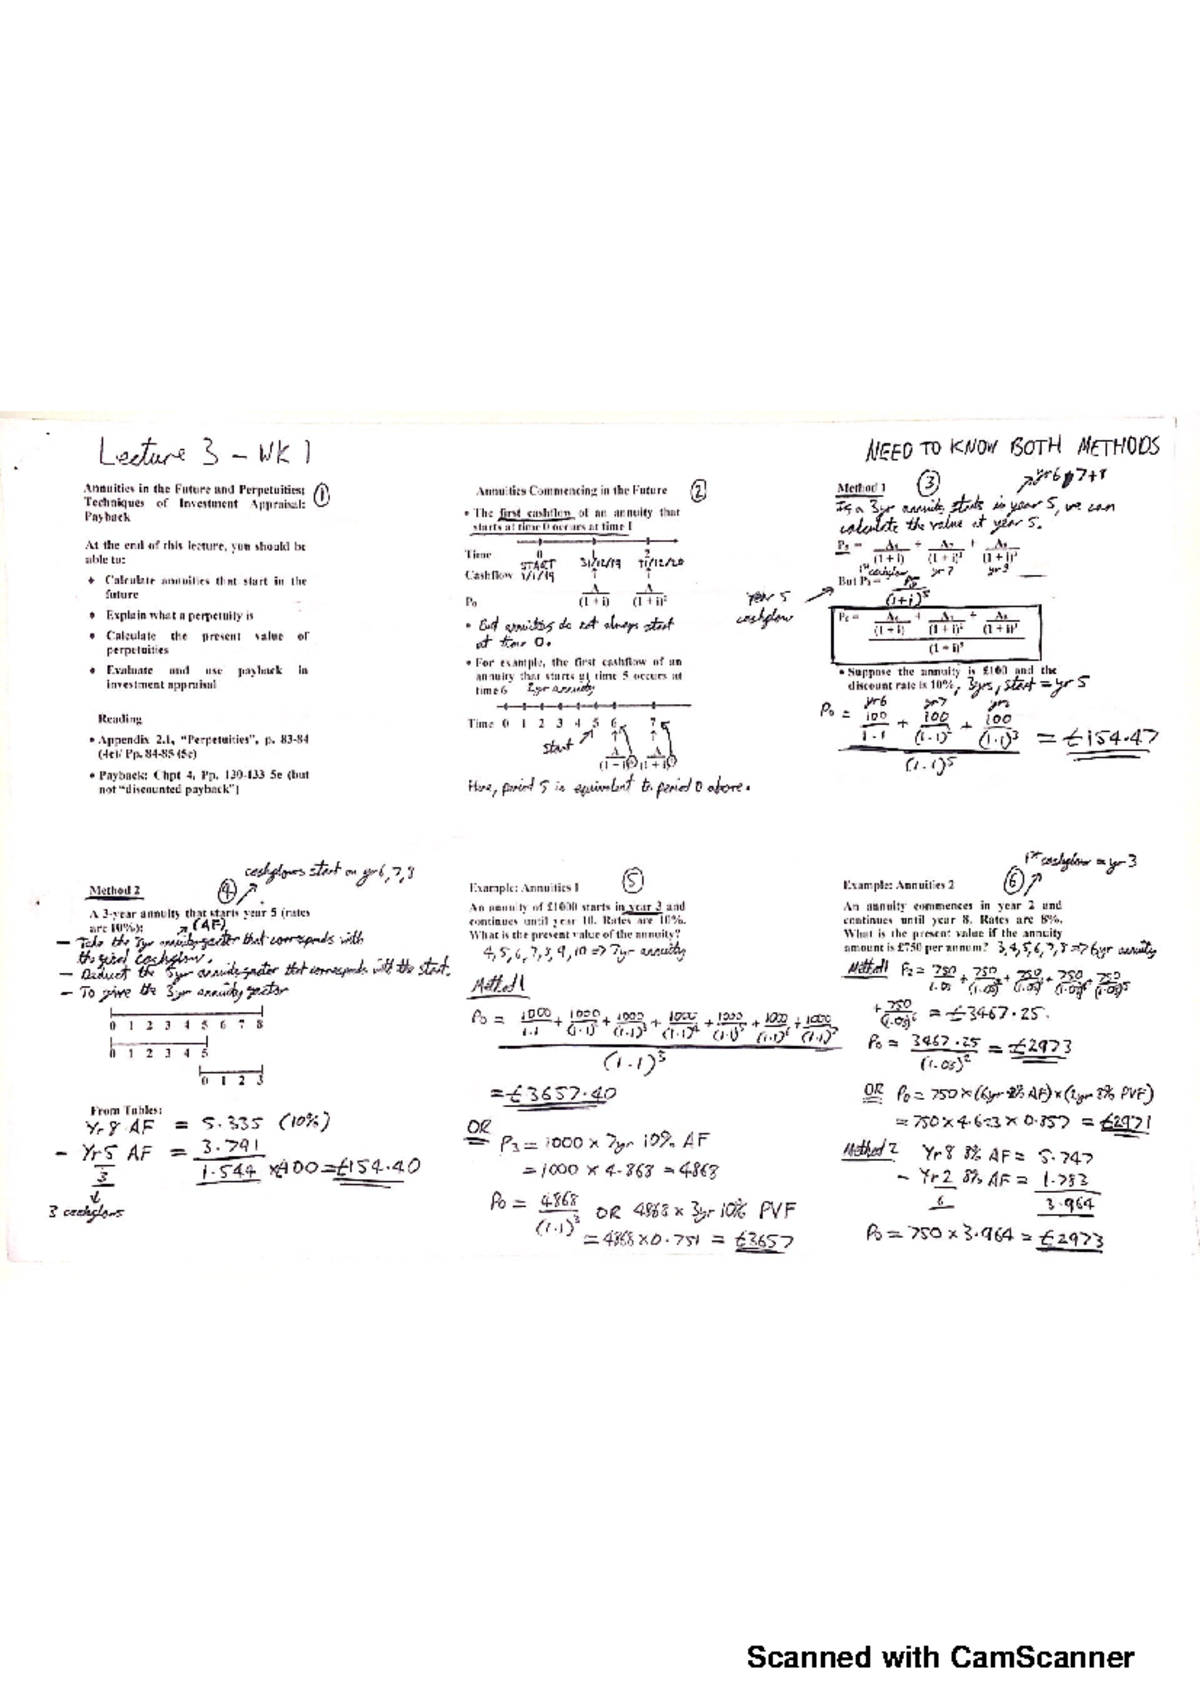 Lecture 3 - WK 1
Annuities in the Future and Perpetuities;
Techniques of Investment Appraisal:
Payback
①
At the end of this lecture, you should be
able to:
♦ Calculate annuities that start in the
future
♦ Explain what a perpetuity is
♦ Calculate the present value of
perpetuities
♦ Evaluate and use payback in
investment appraisal
Reading
• Appendix 2.1, "Perpetuities", p. 83-84
(4e)/ Pp. 84-85 (5e)
• Payback: Chpt 4, Pp. 130-133 5e (but
not "discounted payback")
Annuities Commencing in the Future ②
• The first cashflow of an annuity that
starts at time 0 occurs at time 1
Time 0 1 2
START 31/12/19 31/12/20
Cashflow 1/1/19
P₀ A/(1 + i) A/(1 + i)²
• But annuities do not always start
at time 0.
• For example, the first cashflow of an
annuity that starts at time 5 occurs at
time 6 2yr annuity
Time 0 1 2 3 4 5 6 7
start
Here, period 5 is equivalent to period 0 above.
NEED TO KNOW BOTH METHODS
Method 1 ③ yr 6, 7 + 8
If a 3yr annuity starts in year 5, we can
calculate the value at year 5.
P₅ = A₆/(1 + i) + A₇/(1 + i)² + A₈/(1 + i)³
1st cashflow yr 7
But P₀ = P₅/(1+i)⁵
Year 5
cashflow
P₀ = (A₆/(1 + i) + A₇/(1 + i)² + A₈/(1 + i)³)/(1 + i)⁵
• Suppose the annuity is £100 and the
discount rate is 10%, 3yrs, start = yr 5
yr6 yr7
P₀ = (100/1.1 + 100/(1.1)² + 100/(1.1)³)/(1.1)⁵ = £154.47
cashflows start on yr 6, 7, 8
Method 2 ④
A 3-year annuity that starts year 5 (rates
are 10%): (AF)
- Take the annuity factor that corresponds with
the final cashflow.
- Deduct the 5yr annuity factor that corresponds with the start.
- To give the 3yr annuity factor
0 1 2 3 4 5 6 7 8
0 1 2 3 4 5
0 1 2 3
From Tables:
Yr 8 AF = 5.335 (10%)
- Yr 5 AF = 3.791
3 1.544 x 100 = £154.40
3 cashflows
Example: Annuities 1 ⑤
An annuity of £1000 starts in year 3 and
continues until year 10. Rates are 10%.
What is the present value of the annuity?
4, 5, 6, 7, 8, 9, 10 => 7yr annuity
Method 1
P₀ = (1000/1.1 + 1000/(1.1)² + 1000/(1.1)³ + 1000/(1.1)⁴ + 1000/(1.1)⁵ + 1000/(1.1)⁶ + 1000/(1.1)⁷)/(1.1)³
= £3657.40
OR
P₃ = 1000 x 7yr 10% AF
= 1000 x 4.868 = 4868
P₀ = 4868/(1.1)³ OR 4868 x 3yr 10% PVF
= 4868 x 0.751 = £3657
1st cashflow = yr 3
Example: Annuities 2 ⑥
An annuity commences in year 2 and
continues until year 8. Rates are 8%.
What is the present value if the annuity
amount is £750 per annum? 3, 4, 5, 6, 7, 8 => 6yr annuity
Method 1 P₂ = 750/1.08 + 750/(1.08)² + 750/(1.08)³ + 750/(1.08)⁴ + 750/(1.08)⁵
+ 750/(1.08)⁶ = £3467.25.
P₀ = 3467.25/(1.08)² = £2973
OR P₀ = 750 x (6yr 8% AF) x (2yr 8% PVF)
= 750 x 4.623 x 0.857 = £2971
Method 2 Yr 8 8% AF = 5.747
- Yr 2 8% AF = 1.783
6 3.964
P₀ = 750 x 3.964 = £2973
Scanned with CamScanner